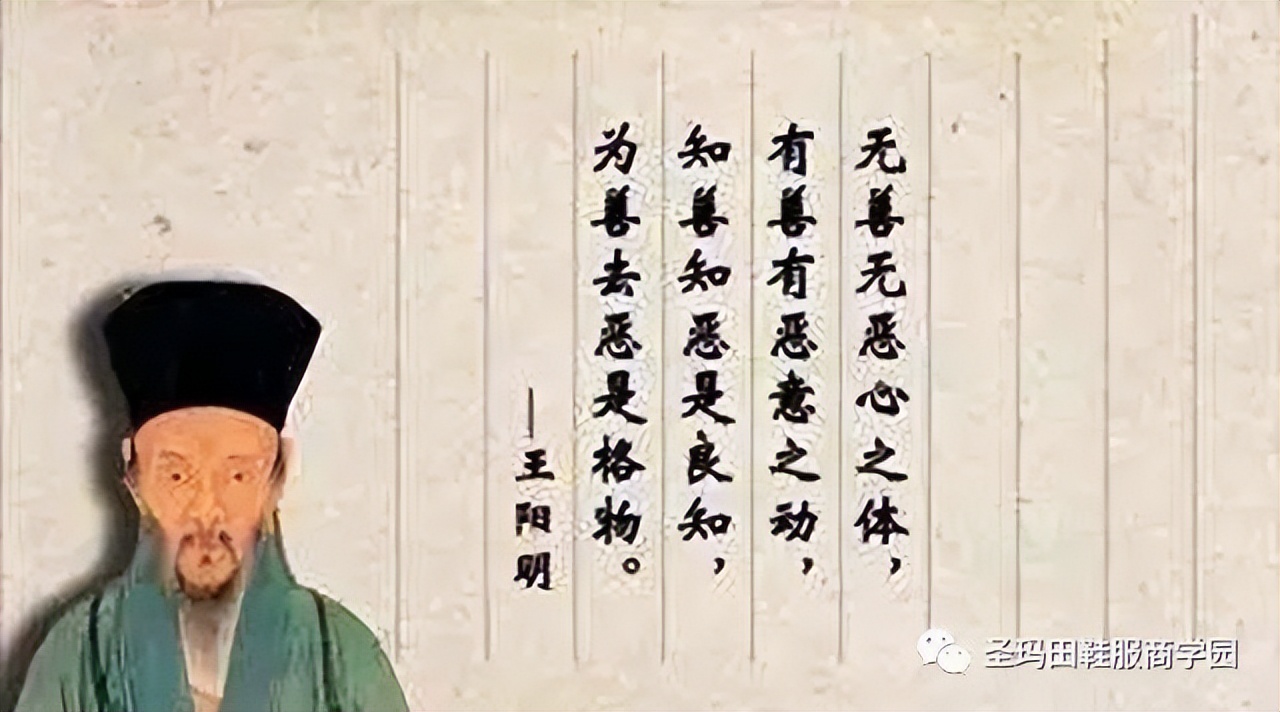 无善无恶心之体，
有善有恶意之动，
知善知恶是良知，
为善去恶是格物。
—王阳明
圣玛田鞋服商学园